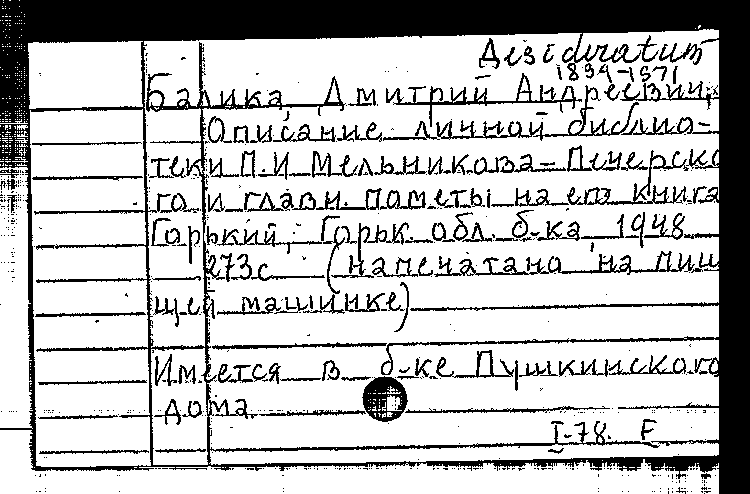 Desideratum
1894-1971
Балика, Дмитрий Андреевич,
Описание личной библио-
теки П.И Мельникова-Печерско
го и главн. пометы на его книга
Горький, Горьк. обл. б-ка 1948
273с (напечатано на пиш
щей машинке)
Имеется в б-ке Пушкинского
дома.
I-78. Е